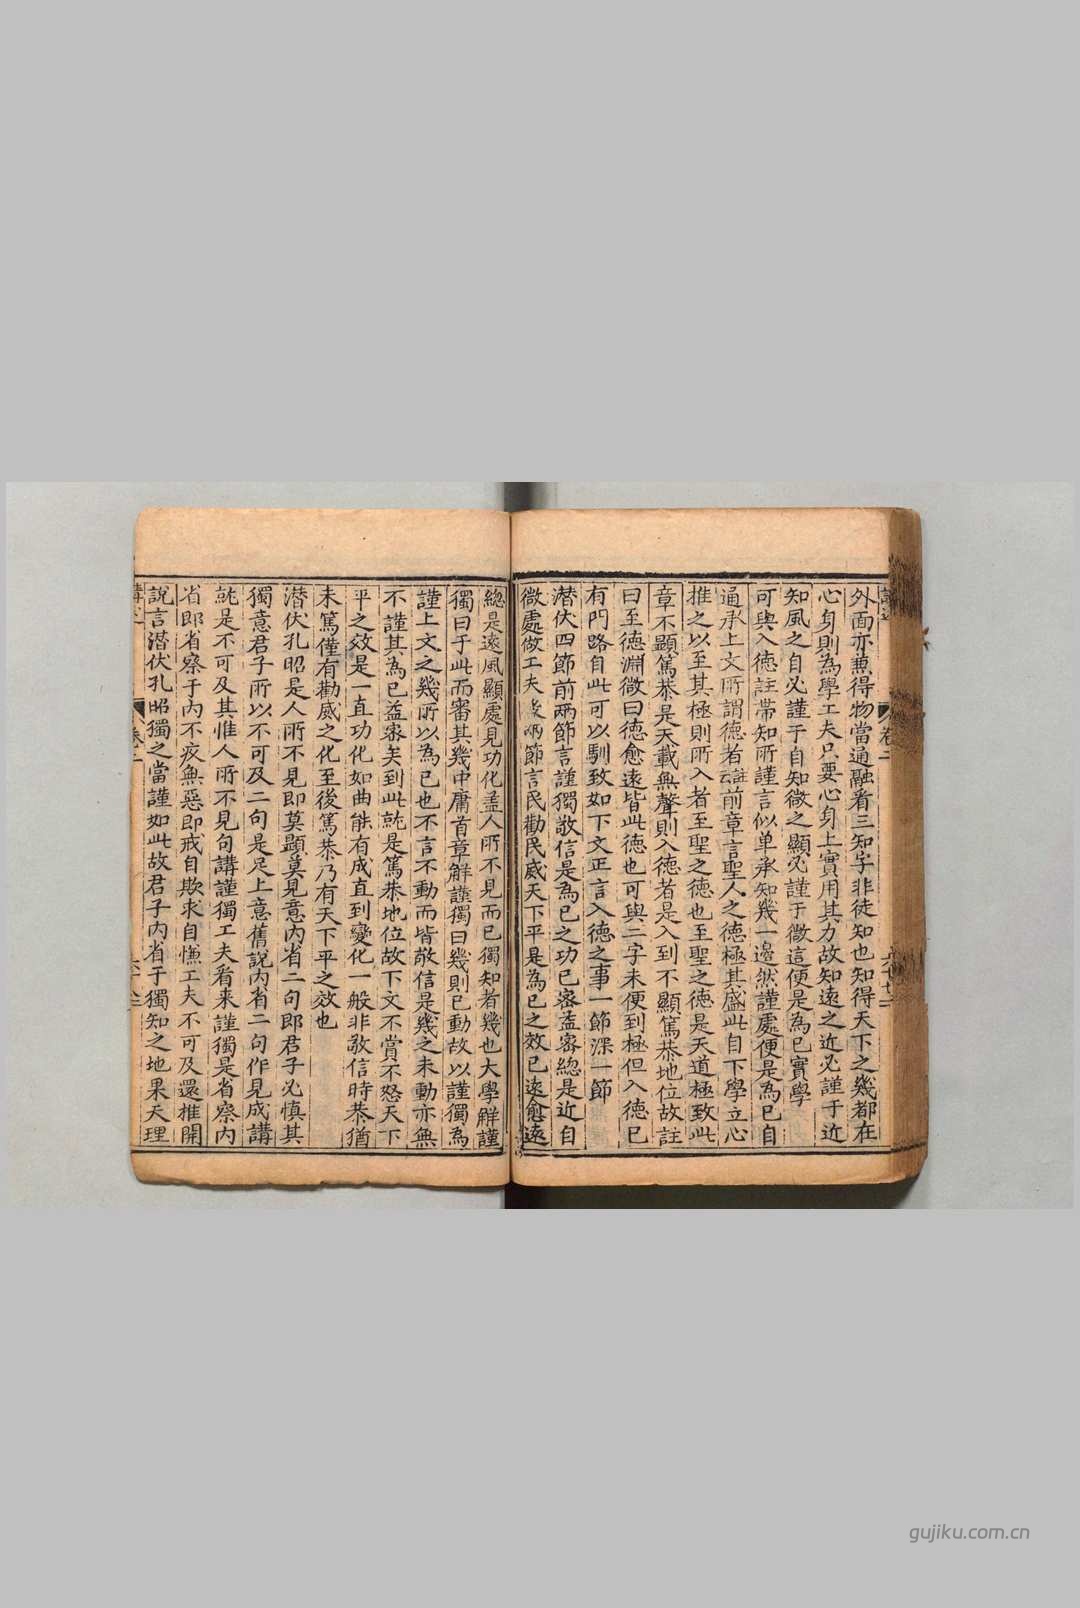 外面亦兼得物當通融看三知字非徒知也知得天下之幾都在
心身則為學工夫只要心身上實用其力故知遠之近必謹于近
知風之自必謹于自知微之顯必謹于微這便是為己實學
可與入德註帶知所謹言似单承知幾一邊然謹處便是為己自
通承上文所謂德者註云前章言聖人之德極其盛此自下學立心
推之以至其極則所入者至聖之德也至聖之德是天道極致此
章不顯篤恭是天載無聲則入德者是入到不顯篤恭地位故註
曰至德淵微曰德愈遠皆此德也可與二字未便到極但入德已
有門路自此可以馴致如下文正言入德之事一節深一節
潛伏四節前兩節言謹獨敬信是為己之功已密益密總是近自
微處做工夫後兩節言民勸民威天下平是為己之效已遠愈遠
總是遠風顯處見功化盖人所不見而已獨知者幾也大學解謹
獨曰于此而審其幾中庸首章解謹獨曰幾則已動故以謹獨為
謹上文之幾所以為己也不言不動而皆敬信是幾之未動亦無
不謹其為己益密矣到此就是篤恭地位故下文不賞不怒天下
平之效是一直功化如曲能有成直到變化一般非敬信時恭猶
未篤僅有勸威之化至後篤恭乃有天下平之效也
潛伏孔昭是人所不見即莫顯莫見意內省二句即君子必慎其
獨意君子所以不可及二句是足上意舊說內省二句作見成講
就是不可及其惟人所不見句講謹獨工夫看来謹獨是省察內
省即省察于內不疚無惡即戒自欺求自慊工夫不可及還推開
說言潛伏孔昭獨之當謹如此故君子內省于獨知之地果天理
卷二
gujiku.com.cn